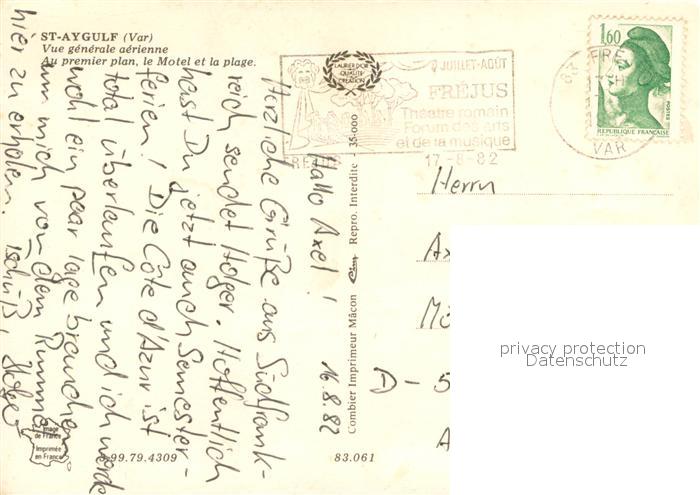 ST-AYGULF (Var)
Vue générale aérienne
Au premier plan, le Motel et la plage.
Hallo Axel!
16.8.82
Herzliche Grüße aus Südfrank-
reich sendet Holger. Hoffentlich
hast Du jetzt auch Semester-
ferien! Die Côte d'Azur ist
total überlaufen und ich werde
wohl ein paar Tage brauchen
um mich von dem Rummel
hier zu erholen. Tschüß, Holger
LAURIER D'OR
QUALITÉ
CRÉATION
JUILLET-AOÛT
FRÉJUS
Théâtre romain
Forum des arts
et de la musique
FRÉJUS
17-8-82
VAR
1,60
POSTES
REPUBLIQUE FRANÇAISE
Combier Imprimeur Mâcon Repro. Interdite - 35-000
Herrn
Ax
Mö
D - 5
A
privacy protection
Datenschutz
Image
de France
Imprimée
en France
99.79.4309
83.061